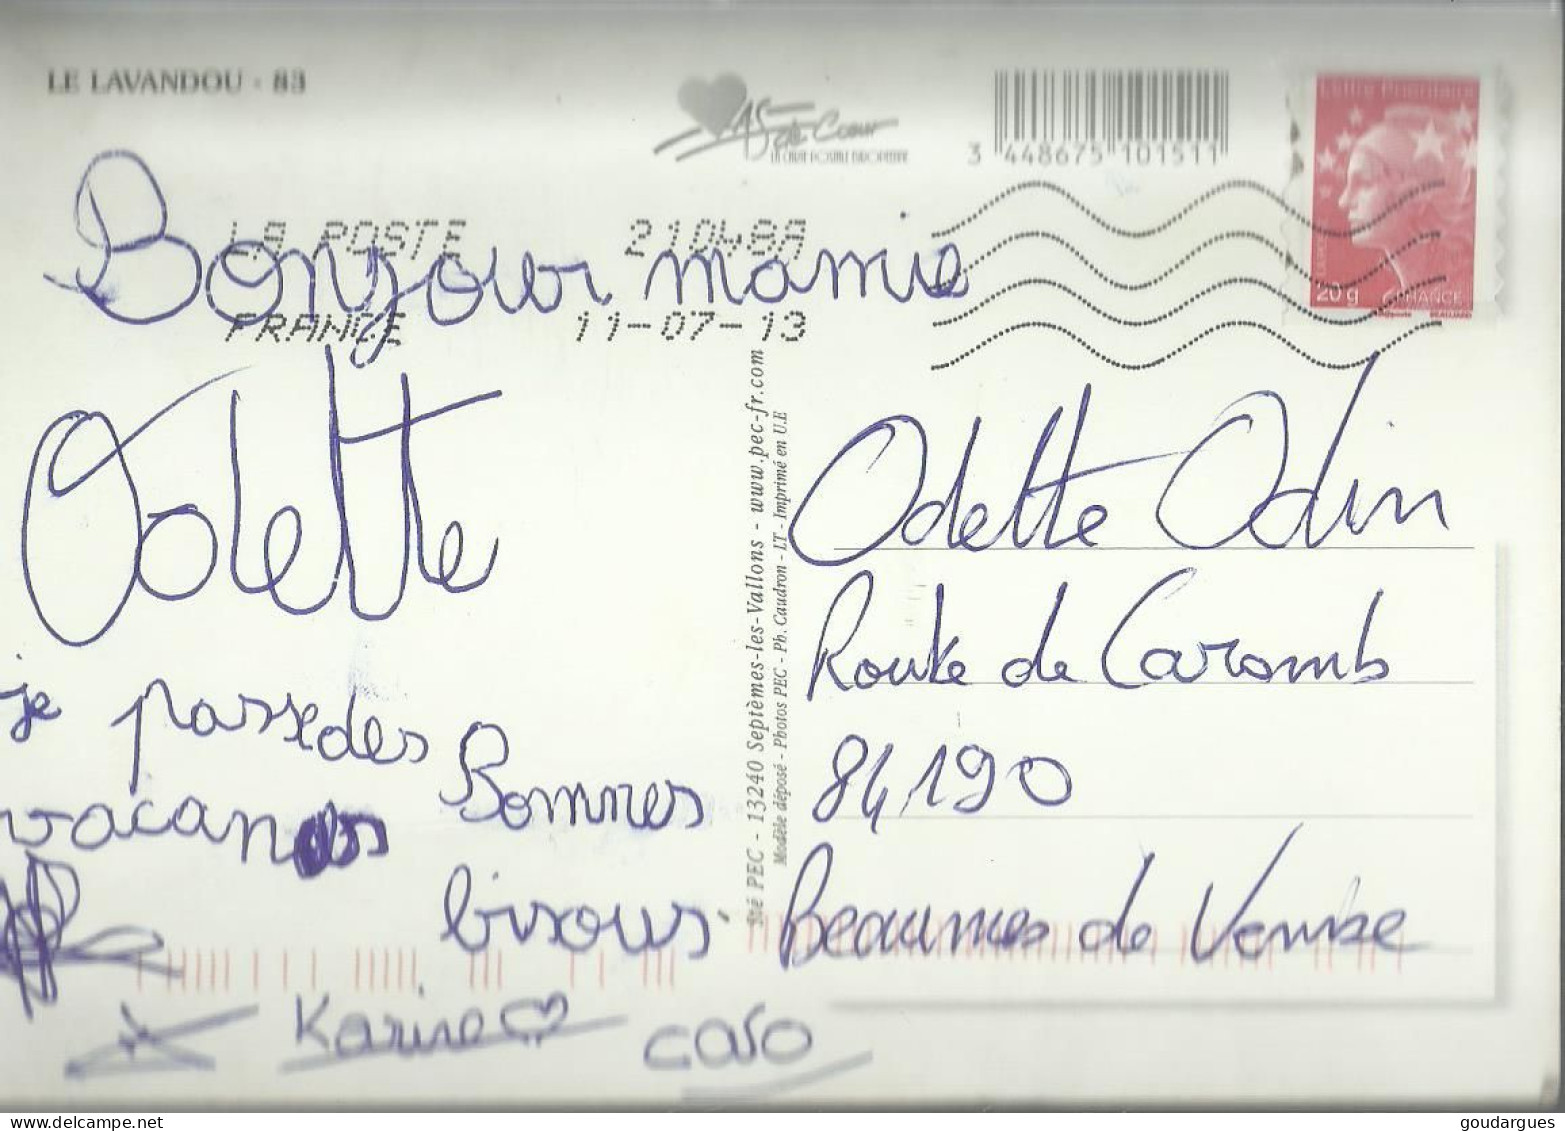 LE LAVANDOU - 83
AS de Cœur
LA CARTE POSTALE EUROPEENNE
3 448675 101511
Lettre Prioritaire
20 g
FRANCE
LA POSTE 21048A
FRANCE 11-07-13
Bonjour mamie
Odette
je passe des
vacances
Bonnes
bisous
Karine
caro
Sté PEC - 13240 Septèmes-les-Vallons - www.pec-fr.com
Modèle déposé - Photos PEC - Ph. Caudron - LT - Imprimé en U.E
Odette Odin
Route de Caromb
84190
Beaumes de Venise
goudargues